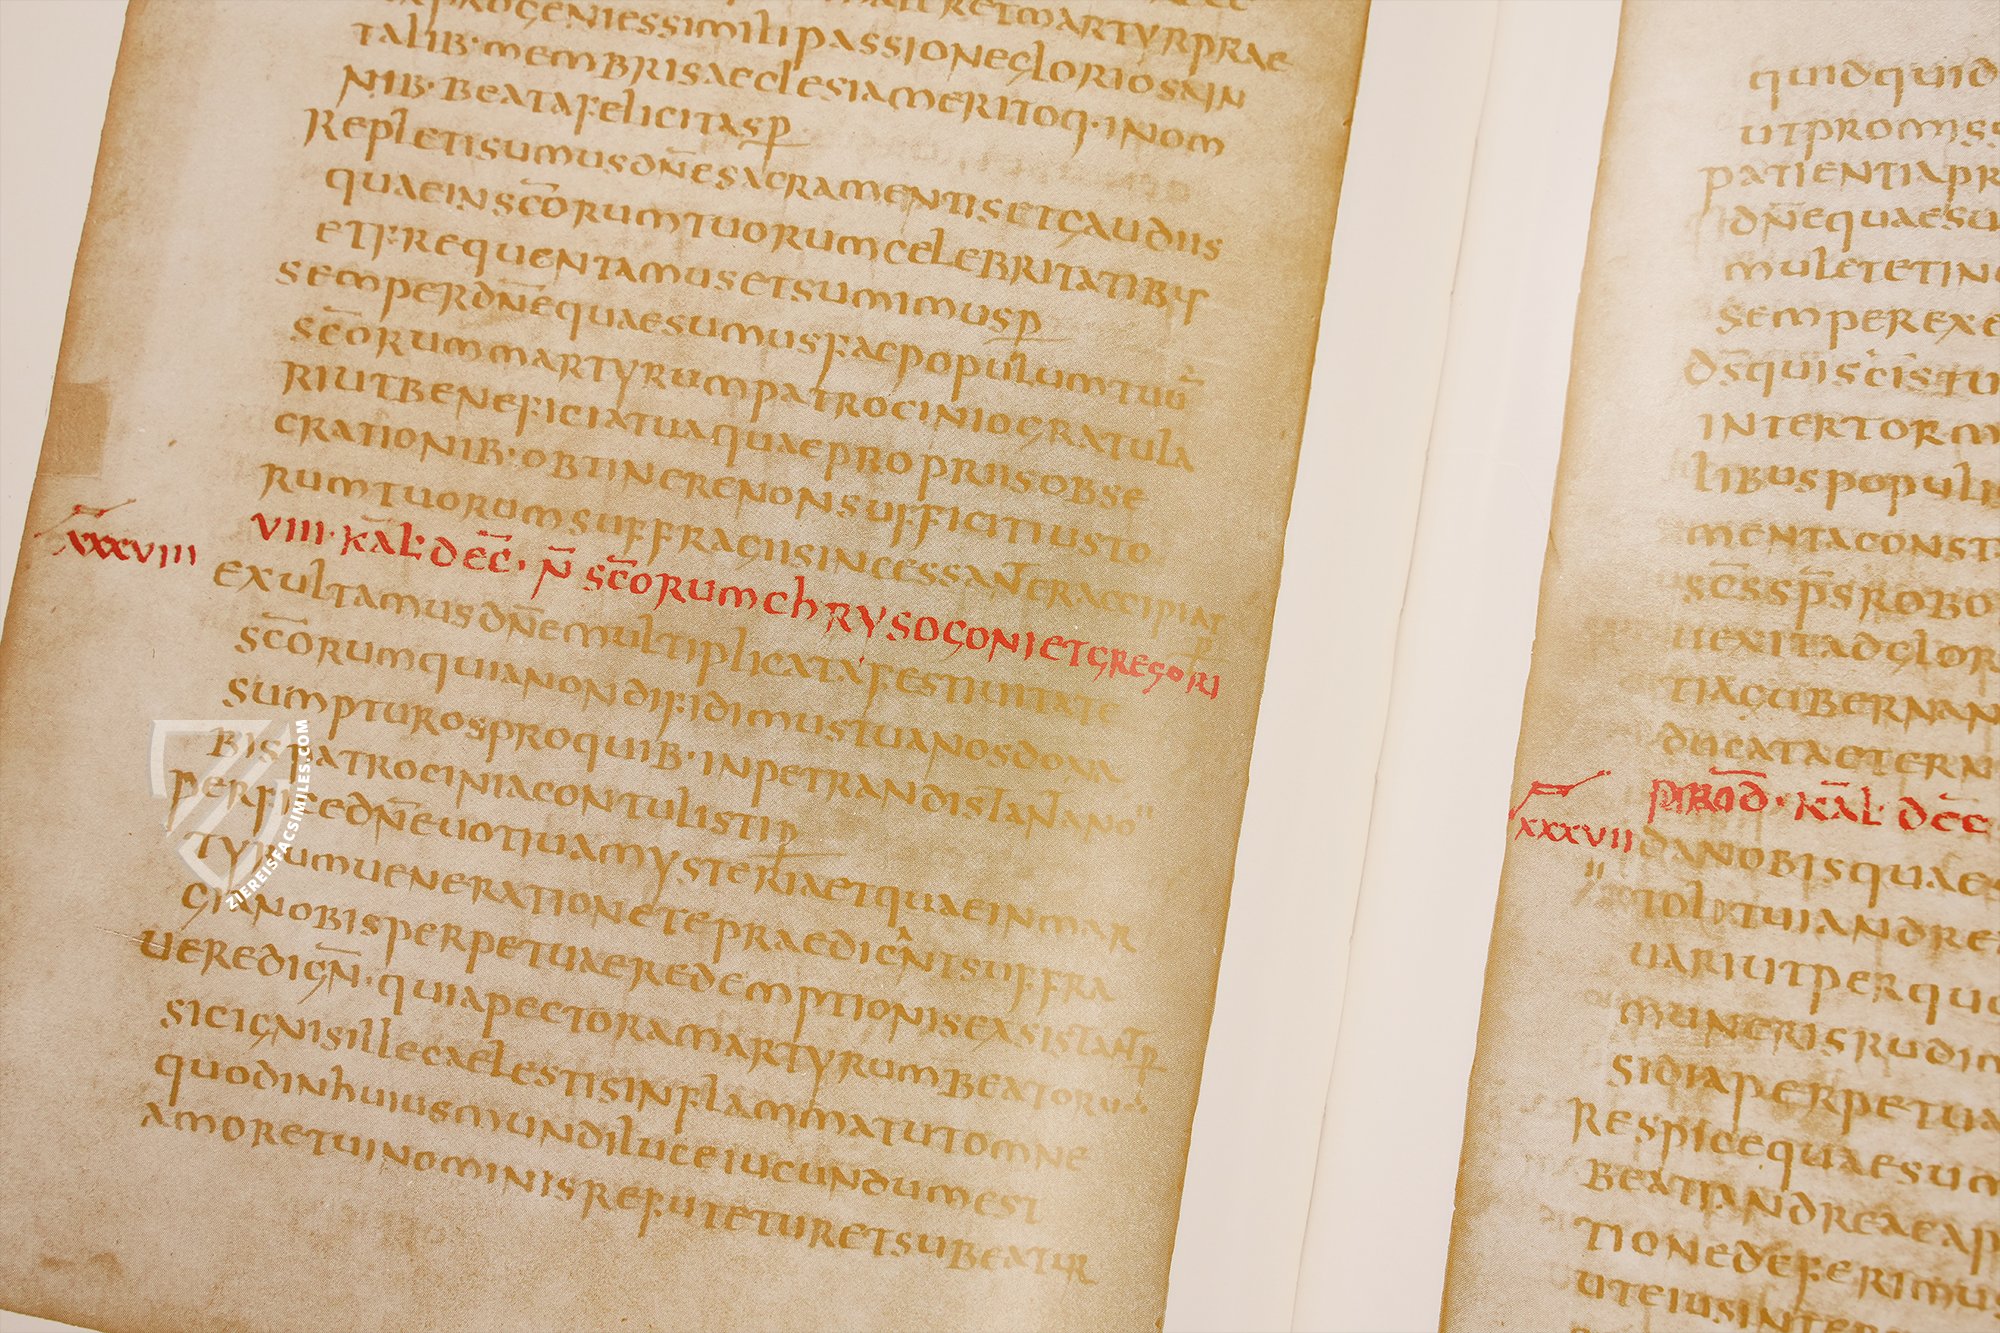 PROGENIESSIMILIPASSIONEGLORIOSAIN
TALIB·MEMBRISAECLESIAMERITOQ·INOM
NIB·BEATAFELICITASP̄
REPLETISUMUSDN̄ESACRAMENTISETGAUDIIS
QUAEINSC̄ORUMTUORUMCELEBRITATIBUS
ETFREQUENTAMUSETSUMIMUSP̄
SEMPERDN̄EQUAESUMUSFACPOPULUMTUŪ
SC̄ORUMMARTYRUMPATROCINIOGRATULA
RIUTBENEFICIATUAQUAEPROPRIISOBSE
CRATIONIB·OBTINERENONSUFFICITIUSTO
RUMTUORUMSUFFRAGIISINCESSANTERACCIPIAT
P̄
XXXVIII VIII·KAL̄·DEC̄·N̄ SC̄ORUMCHRYSOGONIETGREGORI
EXULTAMUSDN̄EMULTIPLICATAFESTIUITATE
SC̄ORUMQUIANONDIFIDIMUSTUANOSDONA
SUMPTUROSPROQUIB·INPETRANDISTANTANO
BISPATROCINIACONTULISTIP̄
PERFICEDN̄EUOTIUAMYSTERIAETQUAEINMAR
TYRUMUENERATIONETEPRAEDICANTSUFFRA
GIANOBISPERPETUAEREDEMPTIONISEXSISTANTP̄
UEREDIGN̄·QUIAPECTORAMARTYRUMBEATORU
SICIGNISILLECAELESTISINFLAMMATUTOMNE
QUODINHUIUSMUNDILUCEIUCUNDUMEST
AMORETUINOMINISREFUTETURETSUBEATUR
QUIDQUID
UTPROMISS
PATIENTIAPR
DN̄EQUAESU
MULETETINC
SEMPEREXE
DS̄QUISC̄IS̄TU
INTERTORM
LIBUSPOPULI
MENTACONST
SC̄SSP̄SROBO
UEXITADGLOR
TIAGUBERNAN
DUCATAETERN
XXXVII PRID̄·KAL̄·DEC̄
DANOBISQUAES
TOLITUIANDRE
UARIUTPERQUO
MUNERISRUDIM
SIDIAPERPETUA
RESPICEQUAESUM
BEATIANDREAEAP
TIONEDEFERIMUS
UTEIUSINTER
ZIEREISFACSIMILES.COM